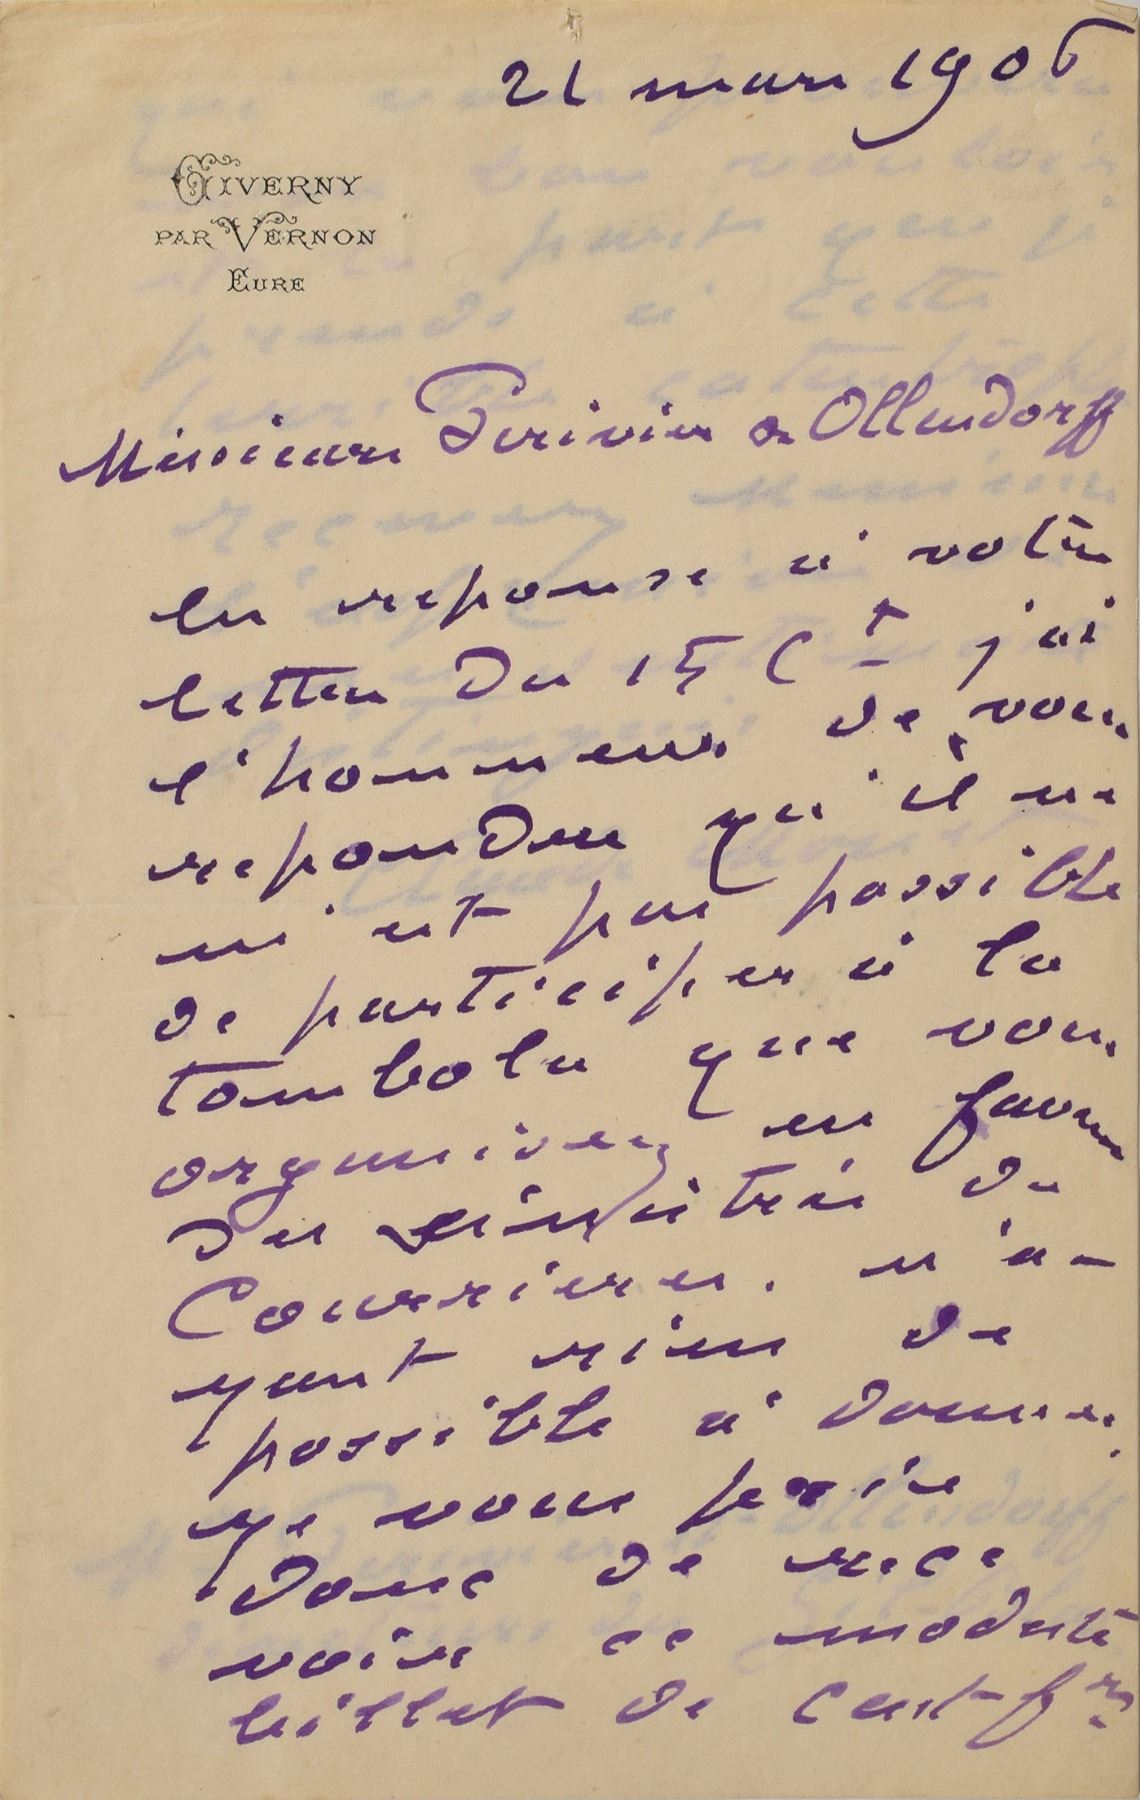 21 mars 1906
GIVERNY
PAR VERNON
EURE
Messieurs Périvier & Ollendorff
En reponse à votre
lettre du 15 Ct j'ai
l'honneur de vous
repondre qu'il ne
m'est pas possible
de participer à la
tombola que vous
organisez en faveur
des sinistrés de
Courrières. n'a-
yant rien de
possible à donner,
je vous prie
donc de rece
voir ce modeste
billet de cent frs